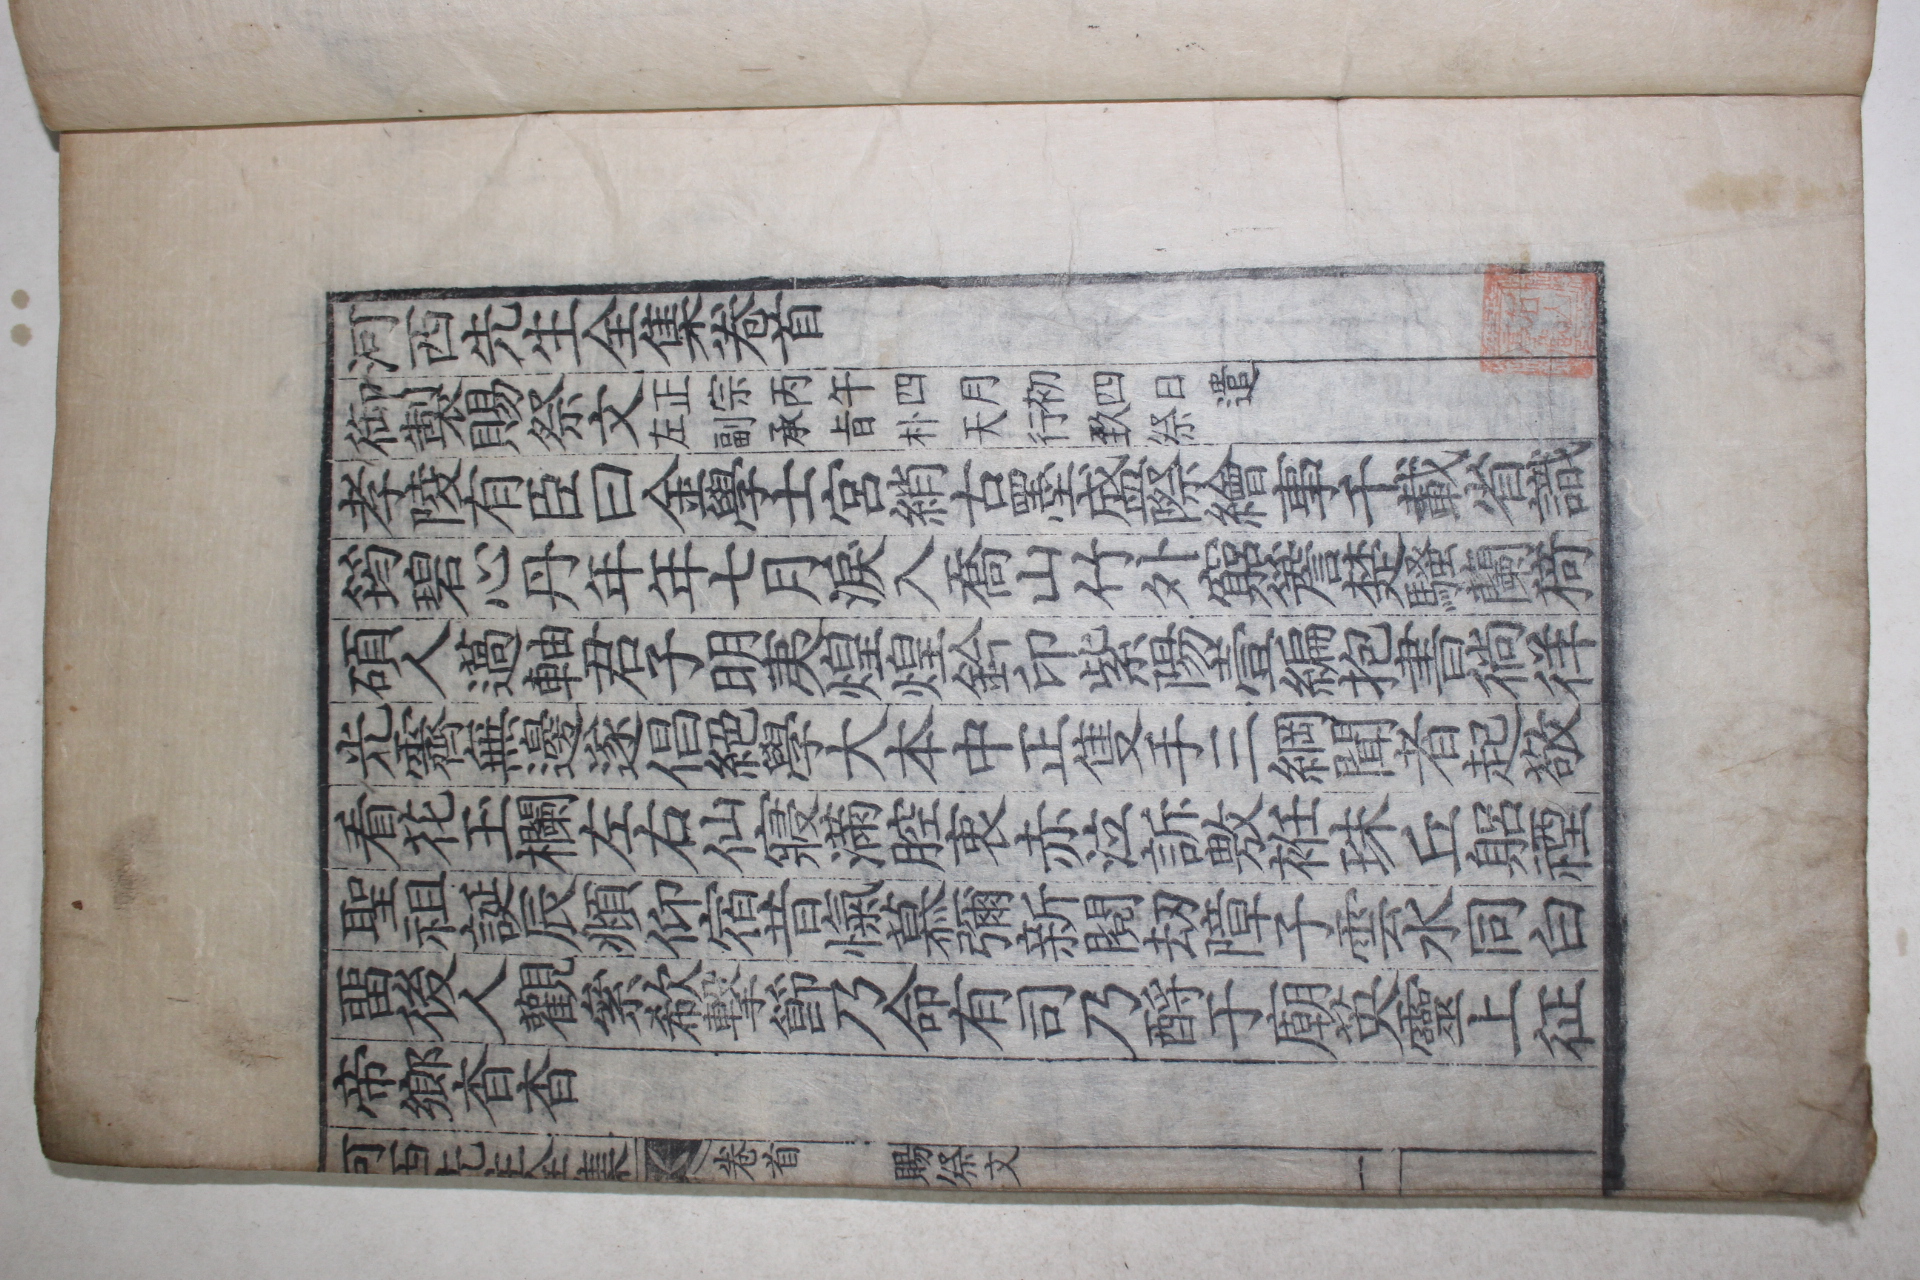 河西先生全集卷首
御製賜祭文 正宗丙午四月初四日遣
左副承旨朴天行致祭
孝陵有臣曰金學士宮綃古墨盛際繪事千載省識
筠碧心丹年年七月淚入喬山竹外窮簷楚騷蘭猗
碩人薖軸君子明夷煌煌鈐印紫陽壹編抱書徜徉
光霽無邊遂倡絕學大本中正隻手三綱聞者起敬
看花玉欄左右仙寢滿腔衷赤泣訴敷袵珠丘躬禋
聖祖誕辰頫仰宿昔愾慕彌新閱劫障子雲水同白
畱後人觀縈欷擊節乃命有司乃酹于廟英靈上征
帝鄉杳杳
河西先生全集 卷首 賜祭文 一